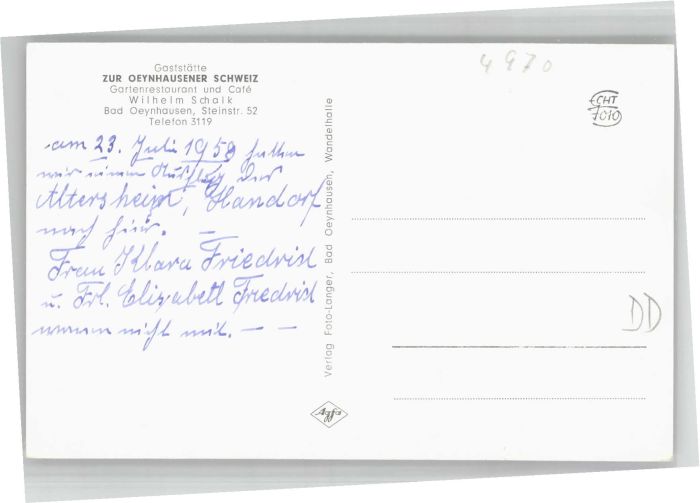 Gaststätte
ZUR OEYNHAUSENER SCHWEIZ
Gartenrestaurant und Café
Wilhelm Schalk
Bad Oeynhausen, Steinstr. 52
Telefon 3119
am 23. Juli 1958 hatten
wir einen Ausflug der
Altersheim, Handorf
nach hier. —
Frau Klara Friedrich
u. Frl. Elisabeth Friedrich
waren nicht mit. — —
Verlag Foto-Langer, Bad Oeynhausen, Wandelhalle
Agfa
4970
ECHT
7010
DD